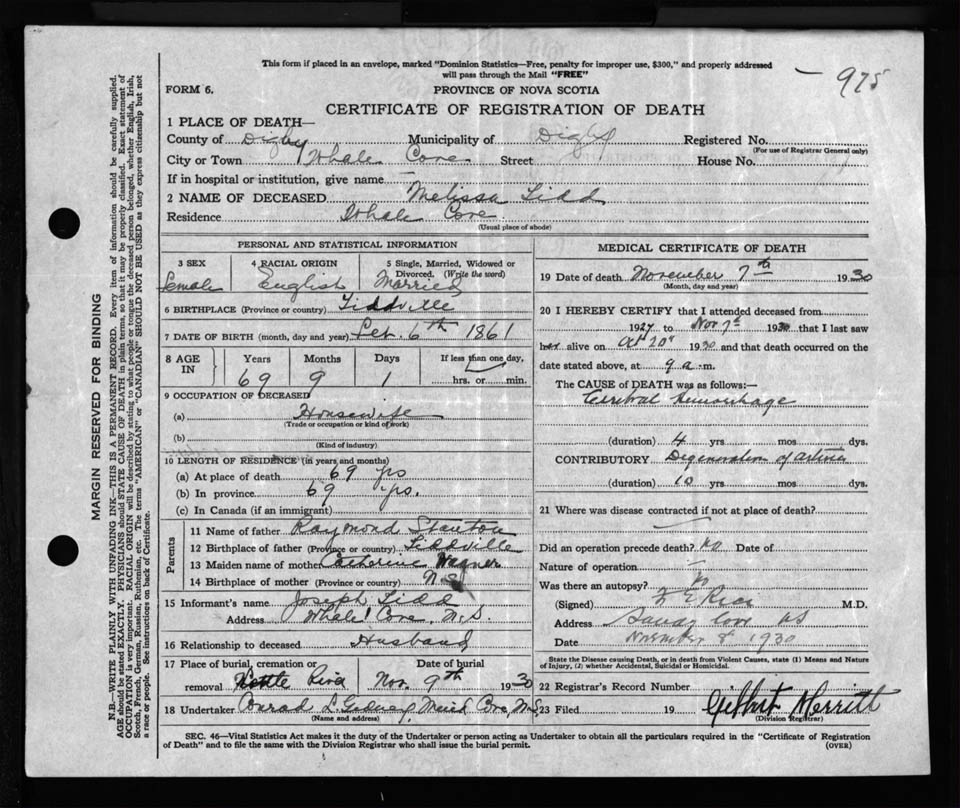 This form if placed in an envelope, marked "Dominion Statistics—Free, penalty for improper use, $300," and properly addressed
will pass through the Mail "FREE"
– 975
FORM 6.
PROVINCE OF NOVA SCOTIA
CERTIFICATE OF REGISTRATION OF DEATH
1 PLACE OF DEATH—
County of Digby Municipality of Digby Registered No.
(For use of Registrar General only)
City or Town Whale Cove Street House No.
If in hospital or institution, give name —
2 NAME OF DECEASED Melissa Tidd
Residence Whale Cove
(Usual place of abode)
PERSONAL AND STATISTICAL INFORMATION
3 SEX
Female
4 RACIAL ORIGIN
English
5 Single, Married, Widowed or
Divorced. (Write the word)
Married
6 BIRTHPLACE (Province or country) Tiddville
7 DATE OF BIRTH (month, day and year) 6th 1861
8 AGE
IN
Years
69
Months
9
Days
1
If less than one day,
hrs. or min.
9 OCCUPATION OF DECEASED
(a) Housewife
(Trade or occupation or kind of work)
(b)
(Kind of industry)
10 LENGTH OF RESIDENCE (in years and months)
(a) At place of death 69 yrs
(b) In province 69 yrs.
(c) In Canada (if an immigrant)
Parents
11 Name of father Raymond Stanton
12 Birthplace of father (Province or country) Tiddville
13 Maiden name of mother Catherine
14 Birthplace of mother (Province or country) N.S.
15 Informant's name Joseph Tidd
Address Whale Cove, N.S.
16 Relationship to deceased Husband
17 Place of burial, cremation or
removal River
Date of burial
Nov. 9th 1930
18 Undertaker Conrad Cove, N.S.
(Name and address)
MEDICAL CERTIFICATE OF DEATH
19 Date of death November 7th 1930
(Month, day and year)
20 I HEREBY CERTIFY that I attended deceased from
1927 to Nov 7th 1930 that I last saw
her alive on 1930 and that death occurred on the
date stated above, at 9 a.m.
The CAUSE of DEATH was as follows:—
Cerebral Hemorrhage
(duration) 4 yrs mos dys.
CONTRIBUTORY Degeneration of arteries
(duration) 10 yrs mos dys.
21 Where was disease contracted if not at place of death?
Did an operation precede death? No Date of
Nature of operation —
Was there an autopsy? No
(Signed) Rice M.D.
Address Sandy Cove NS
Date November 8 1930
State the Disease causing Death, or in death from Violent Causes, state (1) Means and Nature
of Injury, (2) whether Accidental, Suicidal or Homicidal.
22 Registrar's Record Number
23 Filed 19 Gilbert Merritt
(Division Registrar)
SEC. 46—Vital Statistics Act makes it the duty of the Undertaker or person acting as Undertaker to obtain all the particulars required in the "Certificate of Registration
of Death" and to file the same with the Division Registrar who shall issue the burial permit.
(OVER)
MARGIN RESERVED FOR BINDING
N.B.—WRITE PLAINLY WITH UNFADING INK—THIS IS A PERMANENT RECORD. Every item of information should be carefully supplied.
AGE should be stated EXACTLY. PHYSICIANS should STATE CAUSE OF DEATH in plain terms, so that it may be properly classified. Exact statement of
OCCUPATION is very important. RACIAL ORIGIN will be described by stating to what people or tongue the deceased person belonged, whether English, Irish,
Scotch, French, German, Russian, Ruthenian, etc. The terms "AMERICAN" or "CANADIAN" SHOULD NOT BE USED as they express citizenship but not
a race or people. See instructions on back of Certificate.